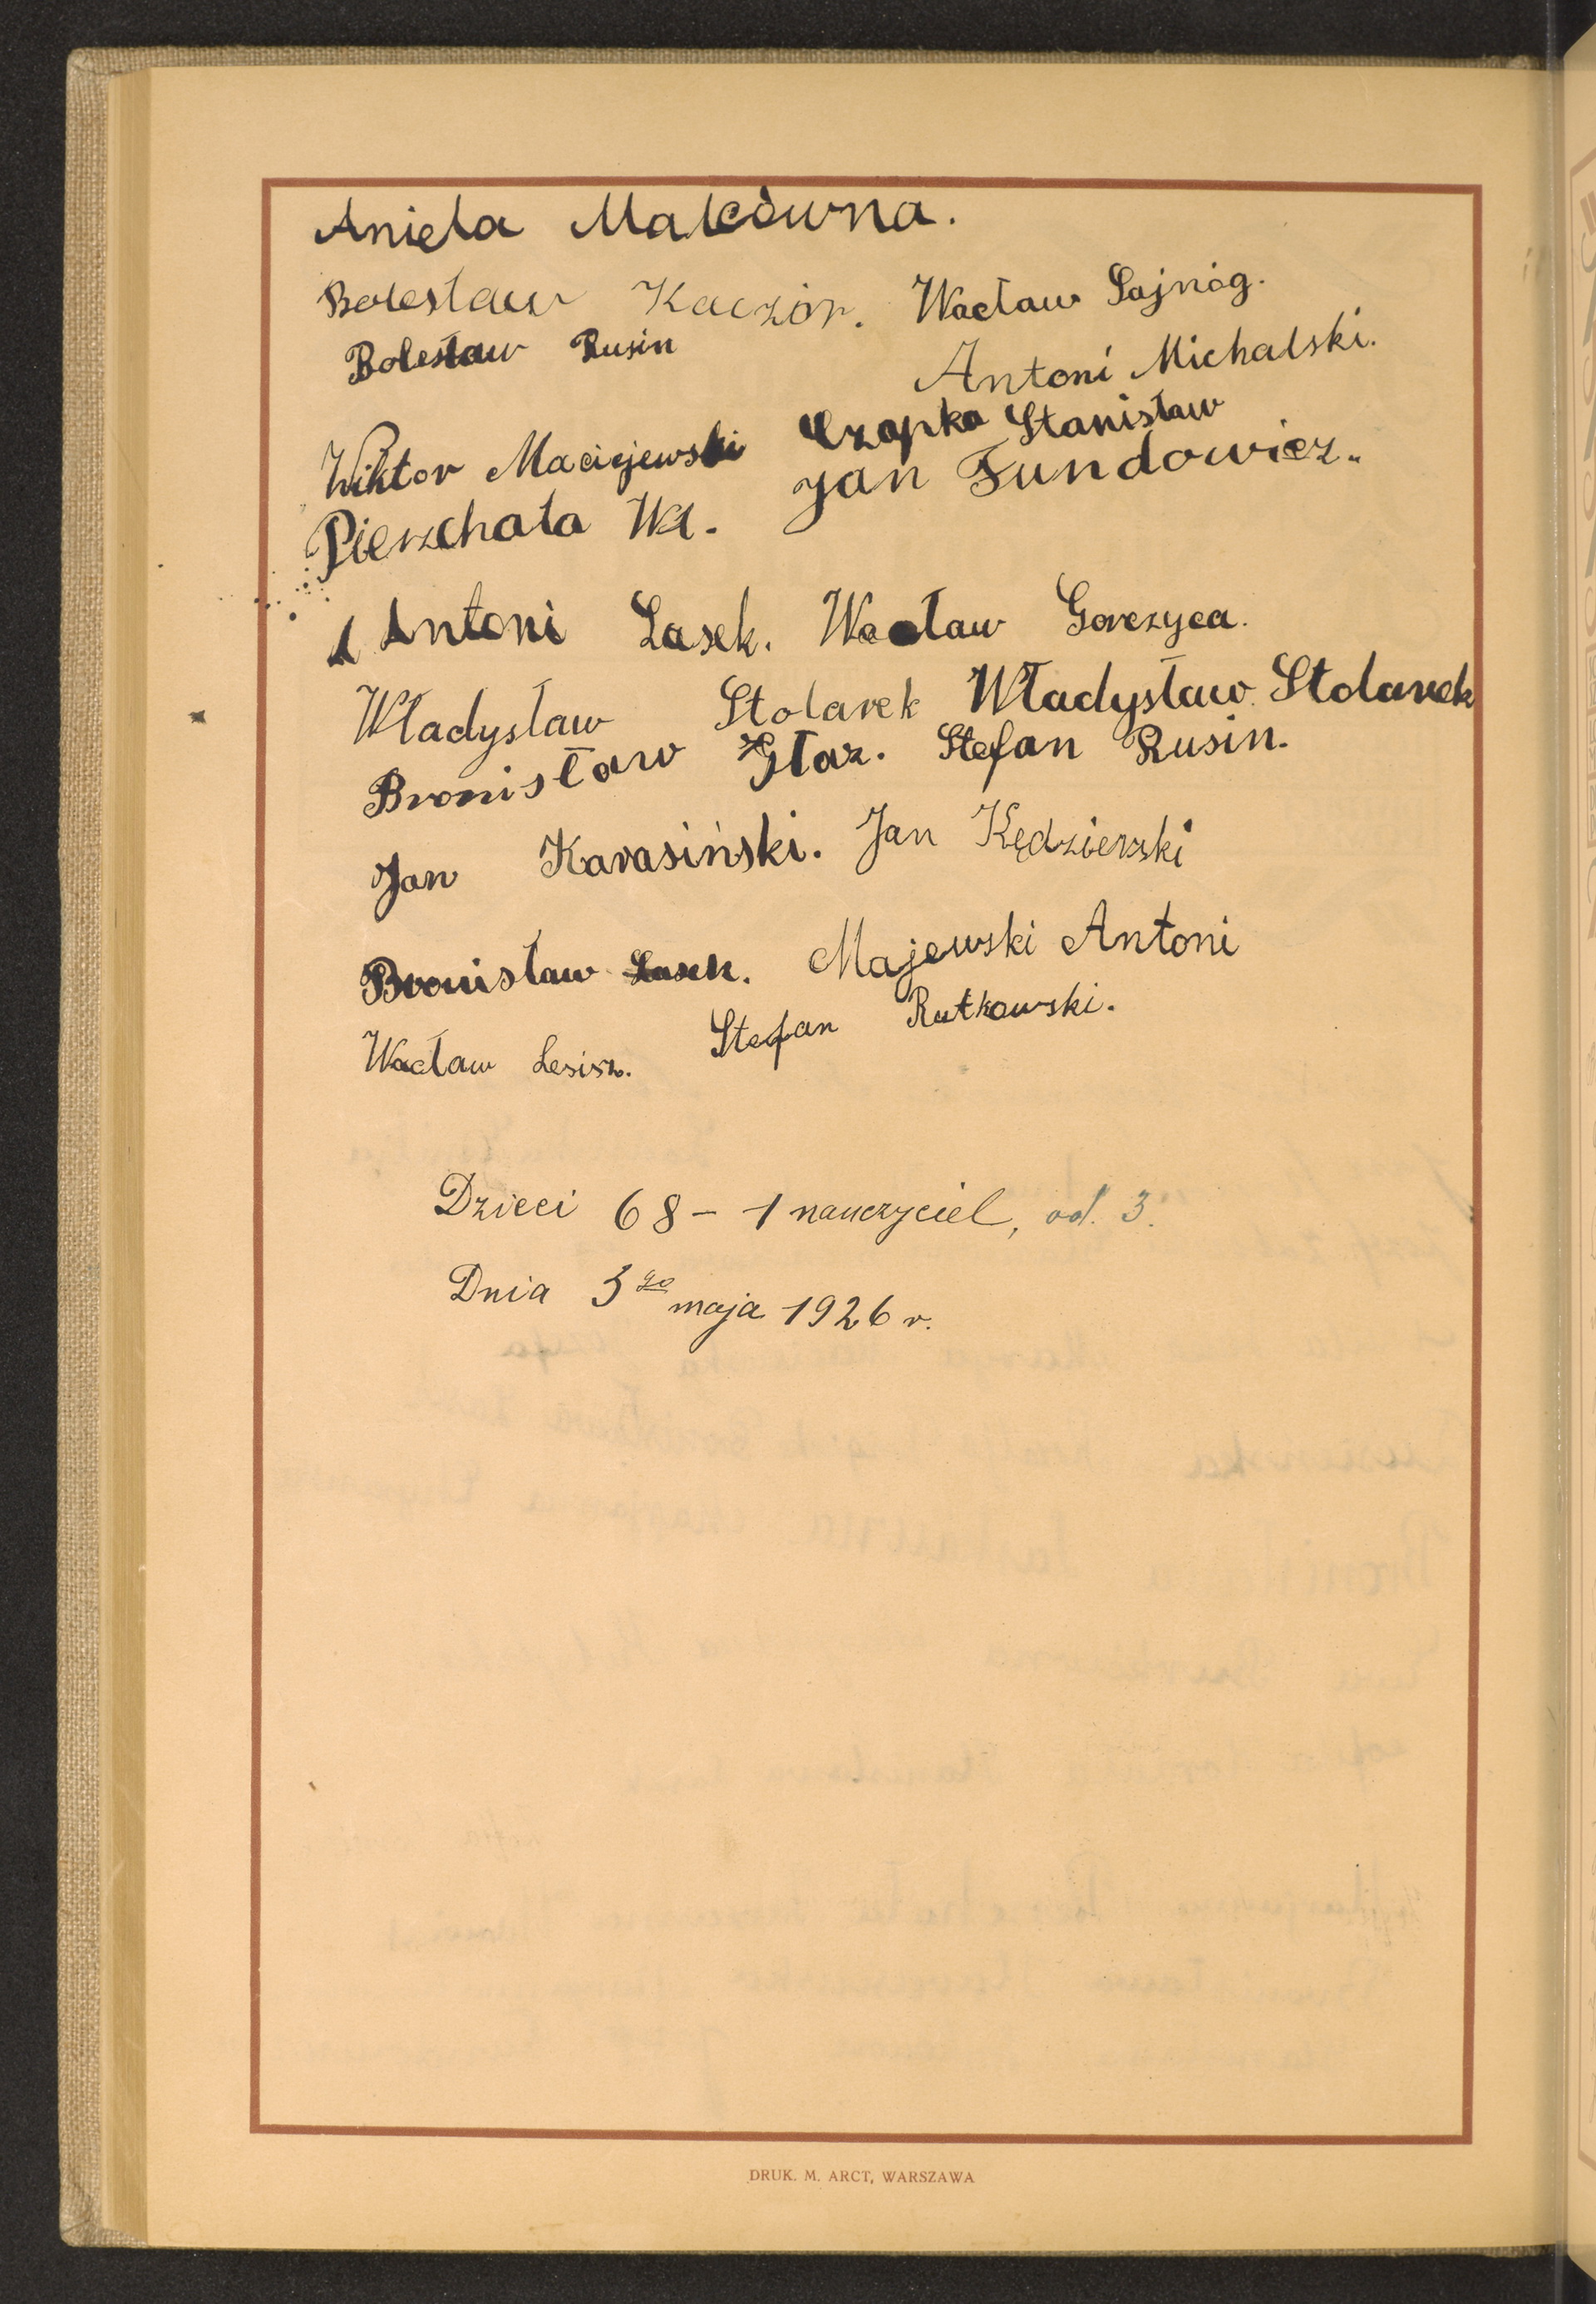 Aniela Malcówna.
Bolesław Kaczór. Wacław Sajnóg.
Bolesław Rusin
Antoni Michalski.
Wiktor Maciejewski Czapka Stanisław
Pierzchała Wł. Jan Fundowicz.
Antoni Lasek. Wacław Gorczyca.
Władysław Stolarek Władysław Stolarek
Bronisław Głaz. Stefan Rusin.
Jan Karasiński. Jan Kędzierski
Bronisław Lasek. Majewski Antoni
Wacław Lesisz. Stefan Rutkowski.
Dzieci 68 – 1 nauczyciel, od. 3.
Dnia 3go maja 1926 r.
DRUK. M. ARCT, WARSZAWA